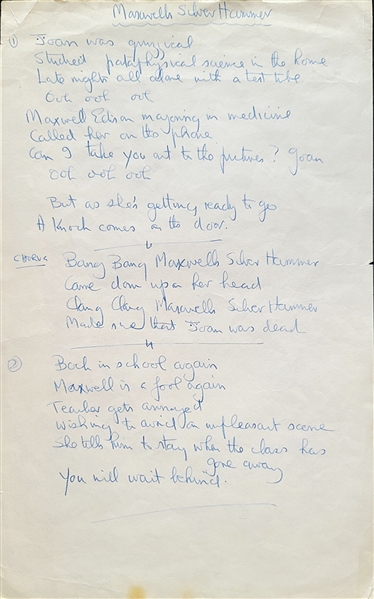 Maxwells Silver Hammer
① Joan was quizzical
Studied pataphysical science in the home
Late nights all alone with a test tube
Ooh ooh ooh
Maxwell Edison majoring in medicine
Called her on the phone
Can I take you out to the pictures? Joan
Ooh ooh ooh
But as she's getting ready to go
A Knock comes on the door.
CHORUS Bang Bang Maxwells Silver Hammer
Came down upon her head
Clang Clang Maxwells Silver Hammer
Made sure that Joan was dead
② Back in school again
Maxwell is a fool again
Teacher gets annoyed
Wishing to avoid an unpleasant scene
She tells him to stay when the class has
gone away
You will wait behind.